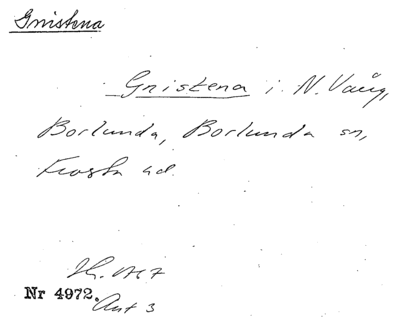 Gnistena
Gnistena i N. Vång,
Borlunda, Borlunda sn,
Frosta hd.
Nr 4972.
Akt 3